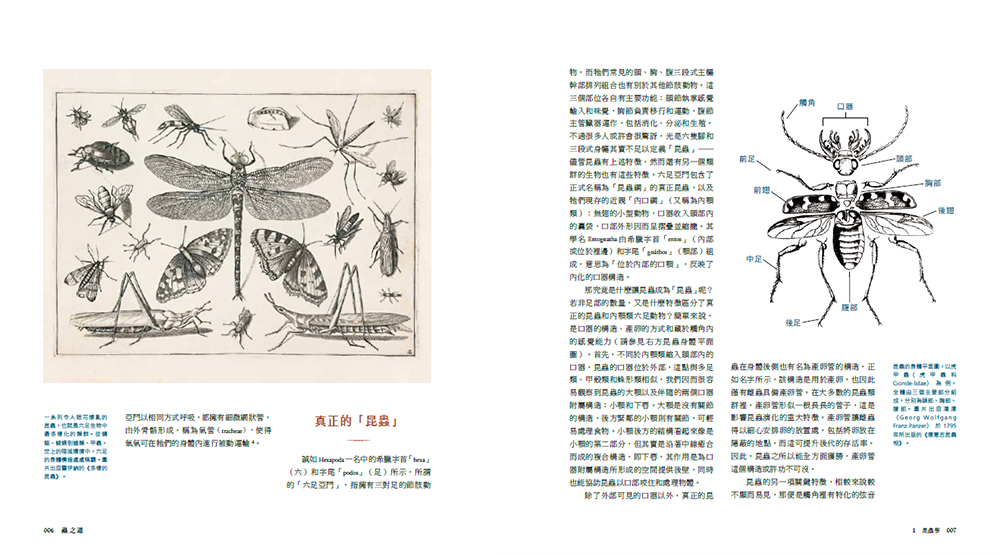 一系列令人眼花撩亂的
昆蟲，也就是六足生物中
最多樣化的類群。從蜻
蜓、蝴蝶到蝗蟲、甲蟲，
世上的陸域環境中，六足
的身體構造處處稱霸。圖
片出自霍伊納的《多樣的
昆蟲》。
亞門以相同方式呼吸，都擁有細微網狀管，
由外骨骼形成，稱為氣管（tracheae），使得
氧氣可在牠們的身體內進行被動運輸4。
真正的「昆蟲」
誠如 Hexapoda 一名中的希臘字首「hexa」
（六）和字尾「podos」（足）所示，所謂
的「六足亞門」，指擁有三對足的節肢動
006 蟲之道
物，而牠們常見的頭、胸、腹三段式主軀
幹部排列組合也有別於其他節肢動物。這
三個部位各自有主要功能：頭節執掌感覺
輸入和味覺，胸節負責移行和運動，腹節
主管臟器運作，包括消化、分泌和生殖。
不過很多人或許會很驚訝，光是六隻腳和
三段式身軀其實不足以定義「昆蟲」——
儘管昆蟲有上述特徵，然而還有另一個類
群的生物也有這些特徵。六足亞門包含了
正式名稱為「昆蟲綱」的真正昆蟲，以及
牠們現存的近親「內口綱」（又稱為內顎
類）：無翅的小型動物，口器收入頭部內
的囊袋，口部外形因而呈摺疊並縮攏。其
學名 Entognatha 由希臘字首「entos」（內部
或位於裡邊）和字尾「gnáthos」（顎部）組
成，意思為「位於內部的口顎」，反映了
內化的口器構造。
那究竟是什麼讓昆蟲成為「昆蟲」呢？
若非足部的數量，又是什麼特徵區分了真
正的昆蟲和內顎類六足動物？簡單來說，
是口器的構造、產卵的方式和藏於觸角內
的感覺能力（請參見右方昆蟲身體平面
圖）。首先，不同於內顎類縮入頭部內的
口器，昆蟲的口器位於外部，這點與多足
類、甲殼類和蛛形類相似，我們因而很容
易觀察到昆蟲的大顎以及伴隨的兩個口器
附屬構造：小顎和下唇。大顎是沒有關節
的構造，後方緊鄰的小顎則有關節，可輕
易處理食物。小顎後方的結構看起來像是
小顎的第二部分，但其實是沿著中線癒合
而成的複合構造，即下唇，其作用是為口
器附屬構造所形成的空間提供後壁，同時
也能協助昆蟲以口部咬住和處理物體。
除了外部可見的口器以外，真正的昆
觸角
口器
前足
頭部
前翅
胸部
後翅
中足
腹部
後足
蟲在身體後側也有名為產卵管的構造，正
如名字所示，該構造是用於產卵，也因此
僅有雌蟲具備產卵管。在大多數的昆蟲類
群裡，產卵管形似一根長長的管子，這是
影響昆蟲演化的重大特徵。產卵管讓雌蟲
得以細心安排卵的放置處，包括將卵放在
隱蔽的地點，而這可提升後代的存活率。
因此，昆蟲之所以能全方面獲勝，產卵管
這個構造或許功不可沒。
昆蟲的另一項關鍵特徵，相較來說較
不顯而易見，那便是觸角裡有特化的弦音
昆蟲的身體平面圖，以虎
甲蟲（虎甲蟲科
Cicinde-lidae）為例。
全體由三個主要部分組
成，分別為頭部、胸部、
腹部。圖片出自潘澤
（Georg Wolfgang
Franz Panzer）於 1795
年所出版的《德意志昆蟲
相》。
1 昆蟲學 007